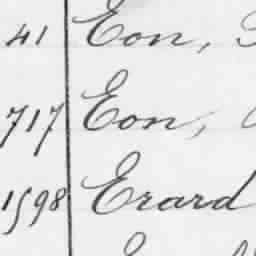 41 Eon,
717 Eon,
1598 Erard